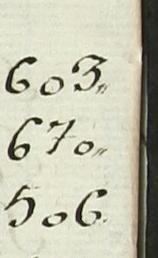 603„
670„
506.